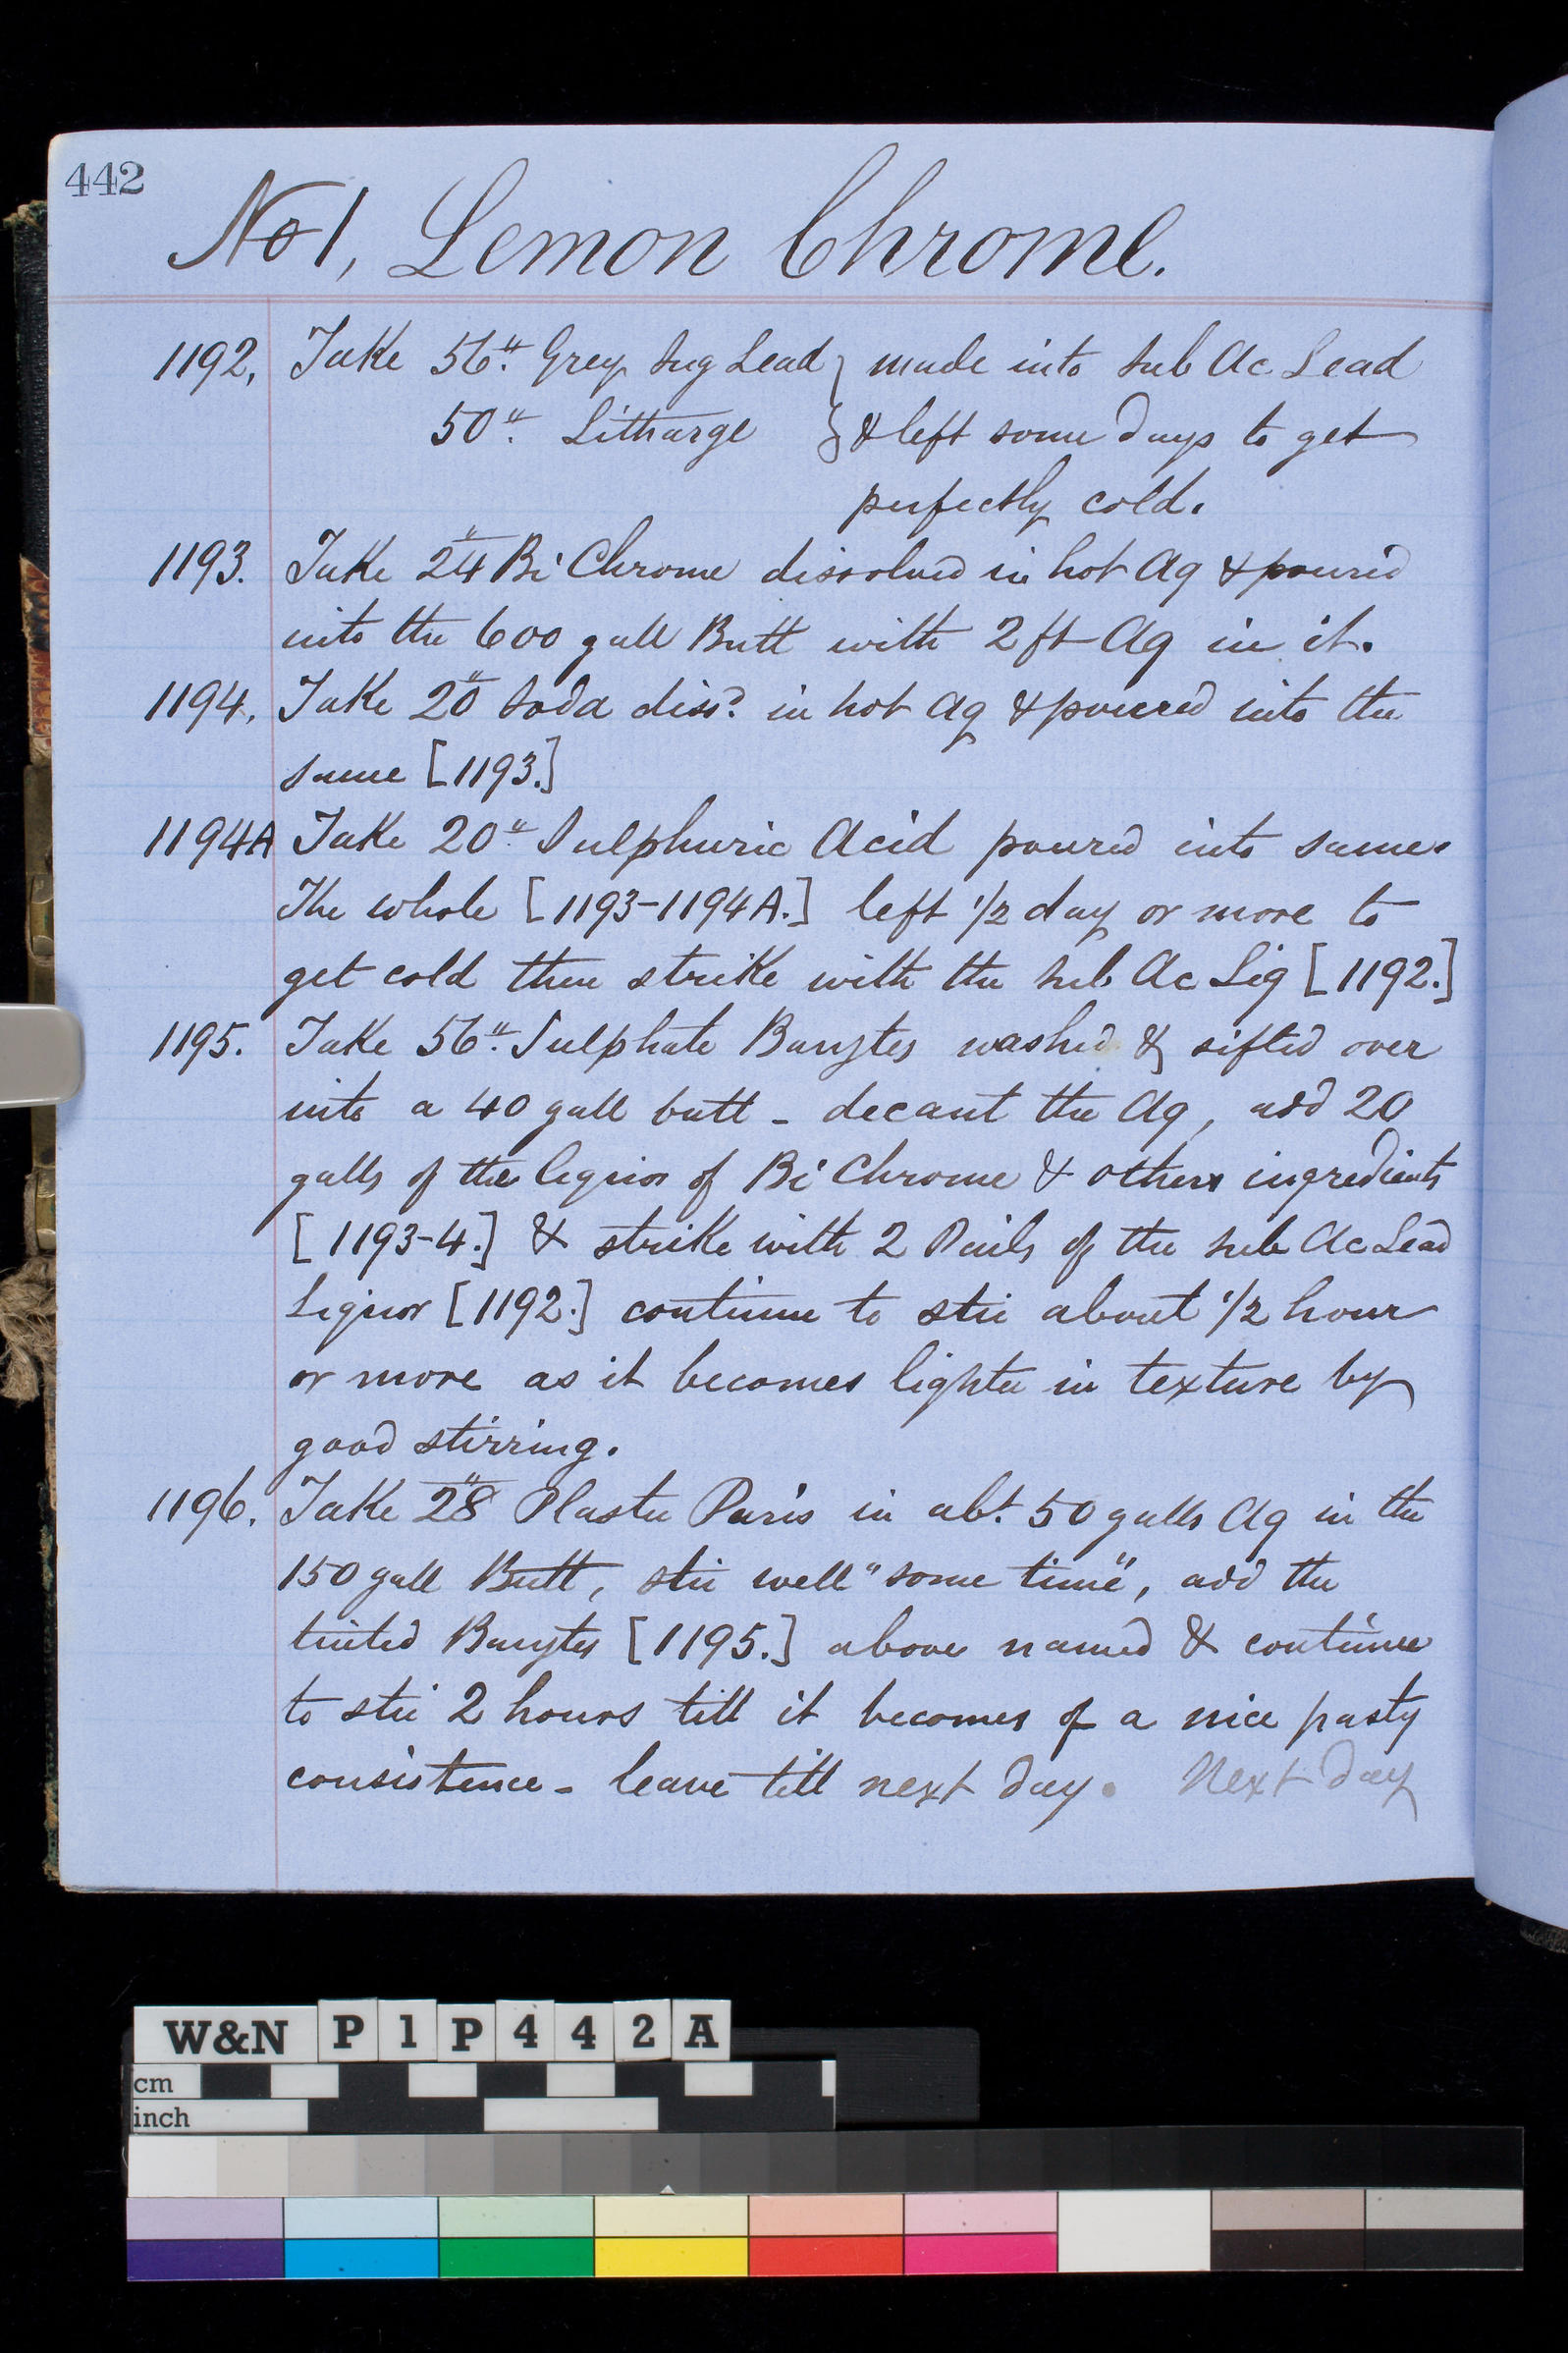 442
No 1, Lemon Chrome.
1192. Take 56" Grey Sug Lead } made into Sub Ac Lead
50" Litharge } & left some days to get
perfectly cold.
1193. Take 24" Bi Chrome dissolved in hot Aq & poured
into the 600 gall Butt with 2 ft Aq in it.
1194. Take 20" Soda dissd. in hot Aq & poured into the
same [1193.]
1194A Take 20" Sulphuric Acid poured into same.
The whole [1193-1194A.] left 1/2 day or more to
get cold then strike with the sub Ac Liq [1192.]
1195. Take 56" Sulphate Barytes washed & sifted over
into a 40 gall butt - decant the Aq, add 20
galls of the liquor of Bi Chrome & others ingredients
[1193-4.] & strike with 2 Pails of the sub Ac Lead
Liquor [1192.] continue to stir about 1/2 hour
or more as it becomes lighter in texture by
good stirring.
1196. Take 28" Plaster Paris in abt. 50 galls Aq in the
150 gall Butt, stir well "some time", add the
tinted Barytes [1195.] above named & continue
to stir 2 hours till it becomes of a nice pasty
consistence - leave till next day. Next day
W&N P1P442A
cm
inch